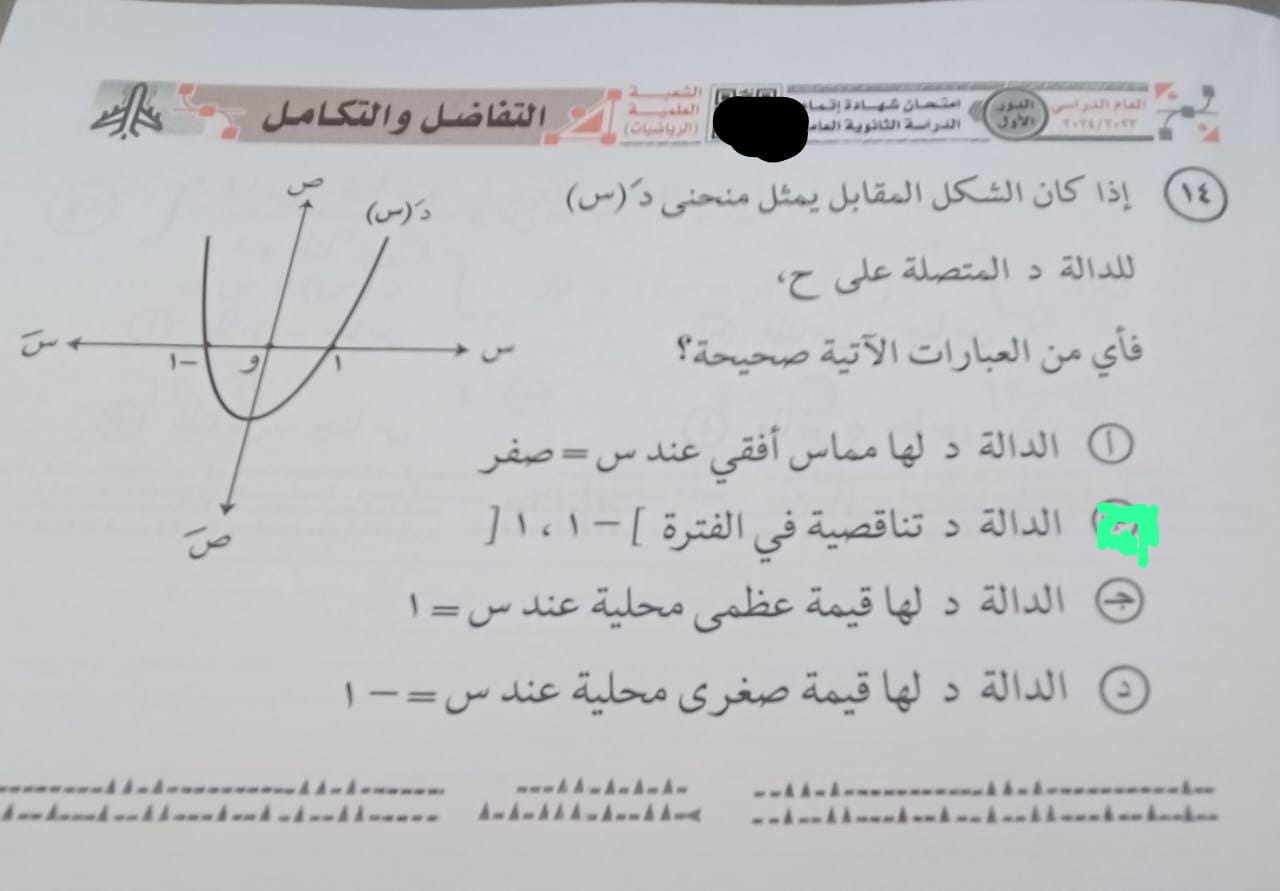 العام الدراسي
٢٠٢٤/٢٠٢٣
الدور
الأول
امتحان شهادة إتمام
الدراسة الثانوية العامة
الشعبة
العلمية
(الرياضيات)
التفاضل والتكامل
١٤ إذا كان الشكل المقابل يمثل منحنى دَ (س)
للدالة د المتصلة على ح،
فأي من العبارات الآتية صحيحة؟
ص
دَ (س)
سَ
١−
و
١
س
صَ
أ الدالة د لها مماس أفقي عند س = صفر
الدالة د تناقصية في الفترة ]−١ ، ١[
جـ الدالة د لها قيمة عظمى محلية عند س = ١
د الدالة د لها قيمة صغرى محلية عند س = −١